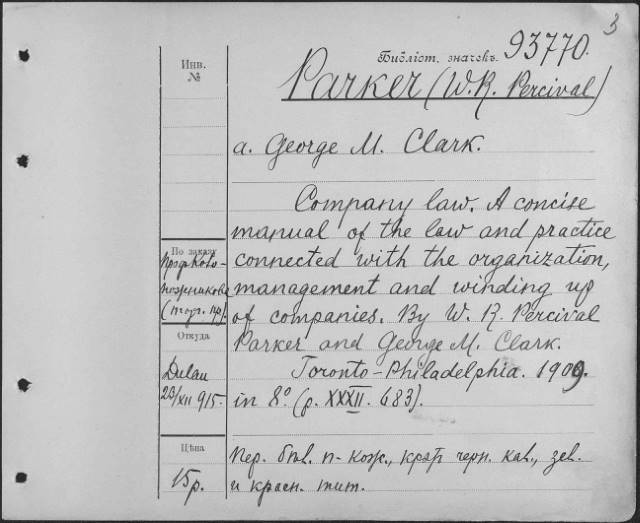 3
Библіот. значекъ. 93770.
Parker (W. R. Percival)
a. George M. Clark.
Company law. A concise
manual of the law and practice
connected with the organization,
management and winding up
of companies. By W. R. Percival
Parker and George M. Clark.
Toronto-Philadelphia. 1909.
in 8º (p. XXXII. 683).
Пер. п-кож., черн. кав., зел.
и красн. тит.
Инв.
№
По заказу
(торг. пр.)
Откуда
Dulau
23/XII 915.
Цѣна
15 р.